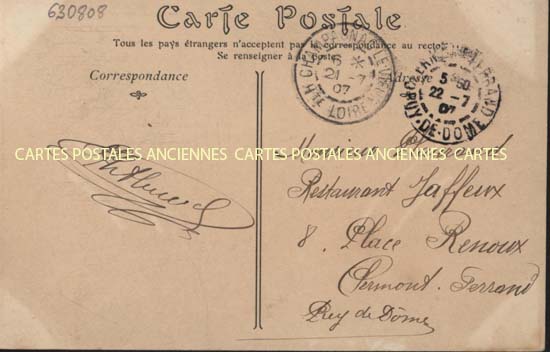 630808
Carte Postale
Tous les pays étrangers n'acceptent pas la correspondance au recto
Se renseigner à la poste
Correspondance
Adresse
CHAMPAGNAC
21 -7
07
HTE LOIRE
CLERMONT-FERRAND
5 30
22 -7
07
PUY-DE-DOME
CARTES POSTALES ANCIENNES CARTES POSTALES ANCIENNES CARTES POSTALES ANCIENNES
Monsieur
Restaurant Jaffeux
8. Place Renoux
Clermont. Ferrand
Puy de Dôme